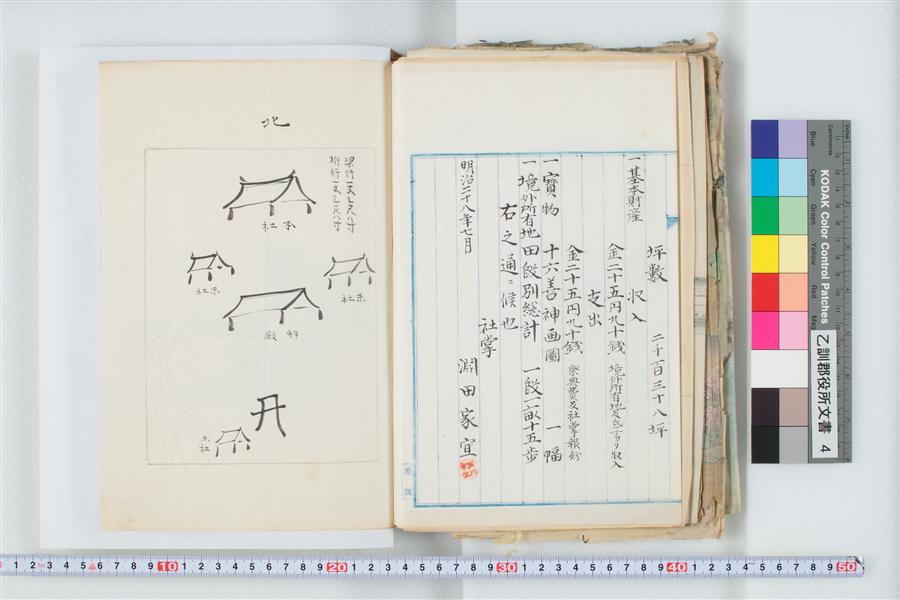 坪数 二千百三十八坪
一基本財産
収入
金二十五円九十銭 境外所有地
支出
金二十五円九十銭 祭典費及社掌報
一寳物 十六善神画圖 一幅
一境外所有地田段別総計 一段一畝十五歩
右之通ニ候也
明治二十八年七月
社掌 淵田家宜
北
梁行一丈
桁行一丈
本社
末社
末社
拝殿
末社
KODAK Color Control Patches
Blue
Cyan
Green
Yellow
Red
Mag
Inches
Centimetres
乙訓郡役所文書
4
1 2 3 4 5 6 7 8 9 10 1 2 3 4 5 6 7 8 9 20 1 2 3 4 5 6 7 8 9 30 1 2 3 4 5 6 7 8 9 40 1 2 3 4 5 6 7 8 9 50